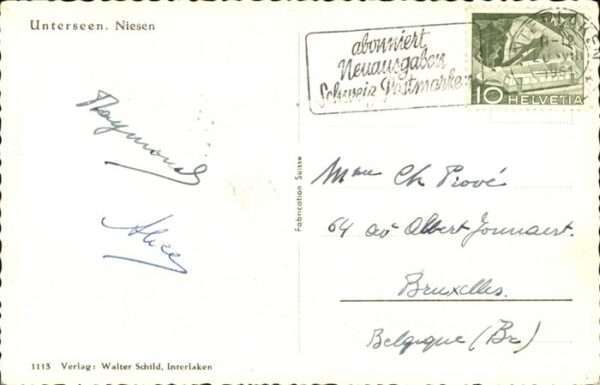 Unterseen. Niesen
abonniert
Neuausgaben
Schweiz. Postmarken
INTERLAKEN
10 HELVETIA
Raymond
Alice
Fabrication Suisse
Mme Ch Prové
64 av Albert Jonnart.
Bruxelles.
Belgique (Br)
1115 Verlag: Walter Schild, Interlaken